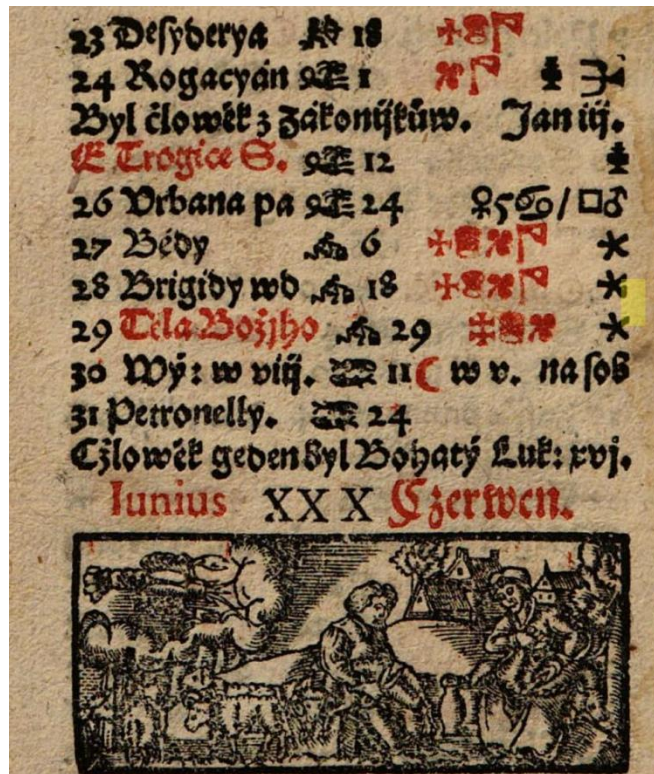 23 Desyderya 18
24 Rogacyán 1
Byl člowěk z Zákonijkůw. Jan iij.
E Trogice S. 12
26 Vrbana pa 24 ♀ 5 ♋ / □♂
27 Bédy 6
28 Brigidy wd 18
29 Těla Božjho 29
30 Wý: w viij. 11 ☾ w v. na sob
31 Petronelly. 24
Cžlowěk geden byl Bohatý Luk: xvj.
Iunius XXX Cžerwen.